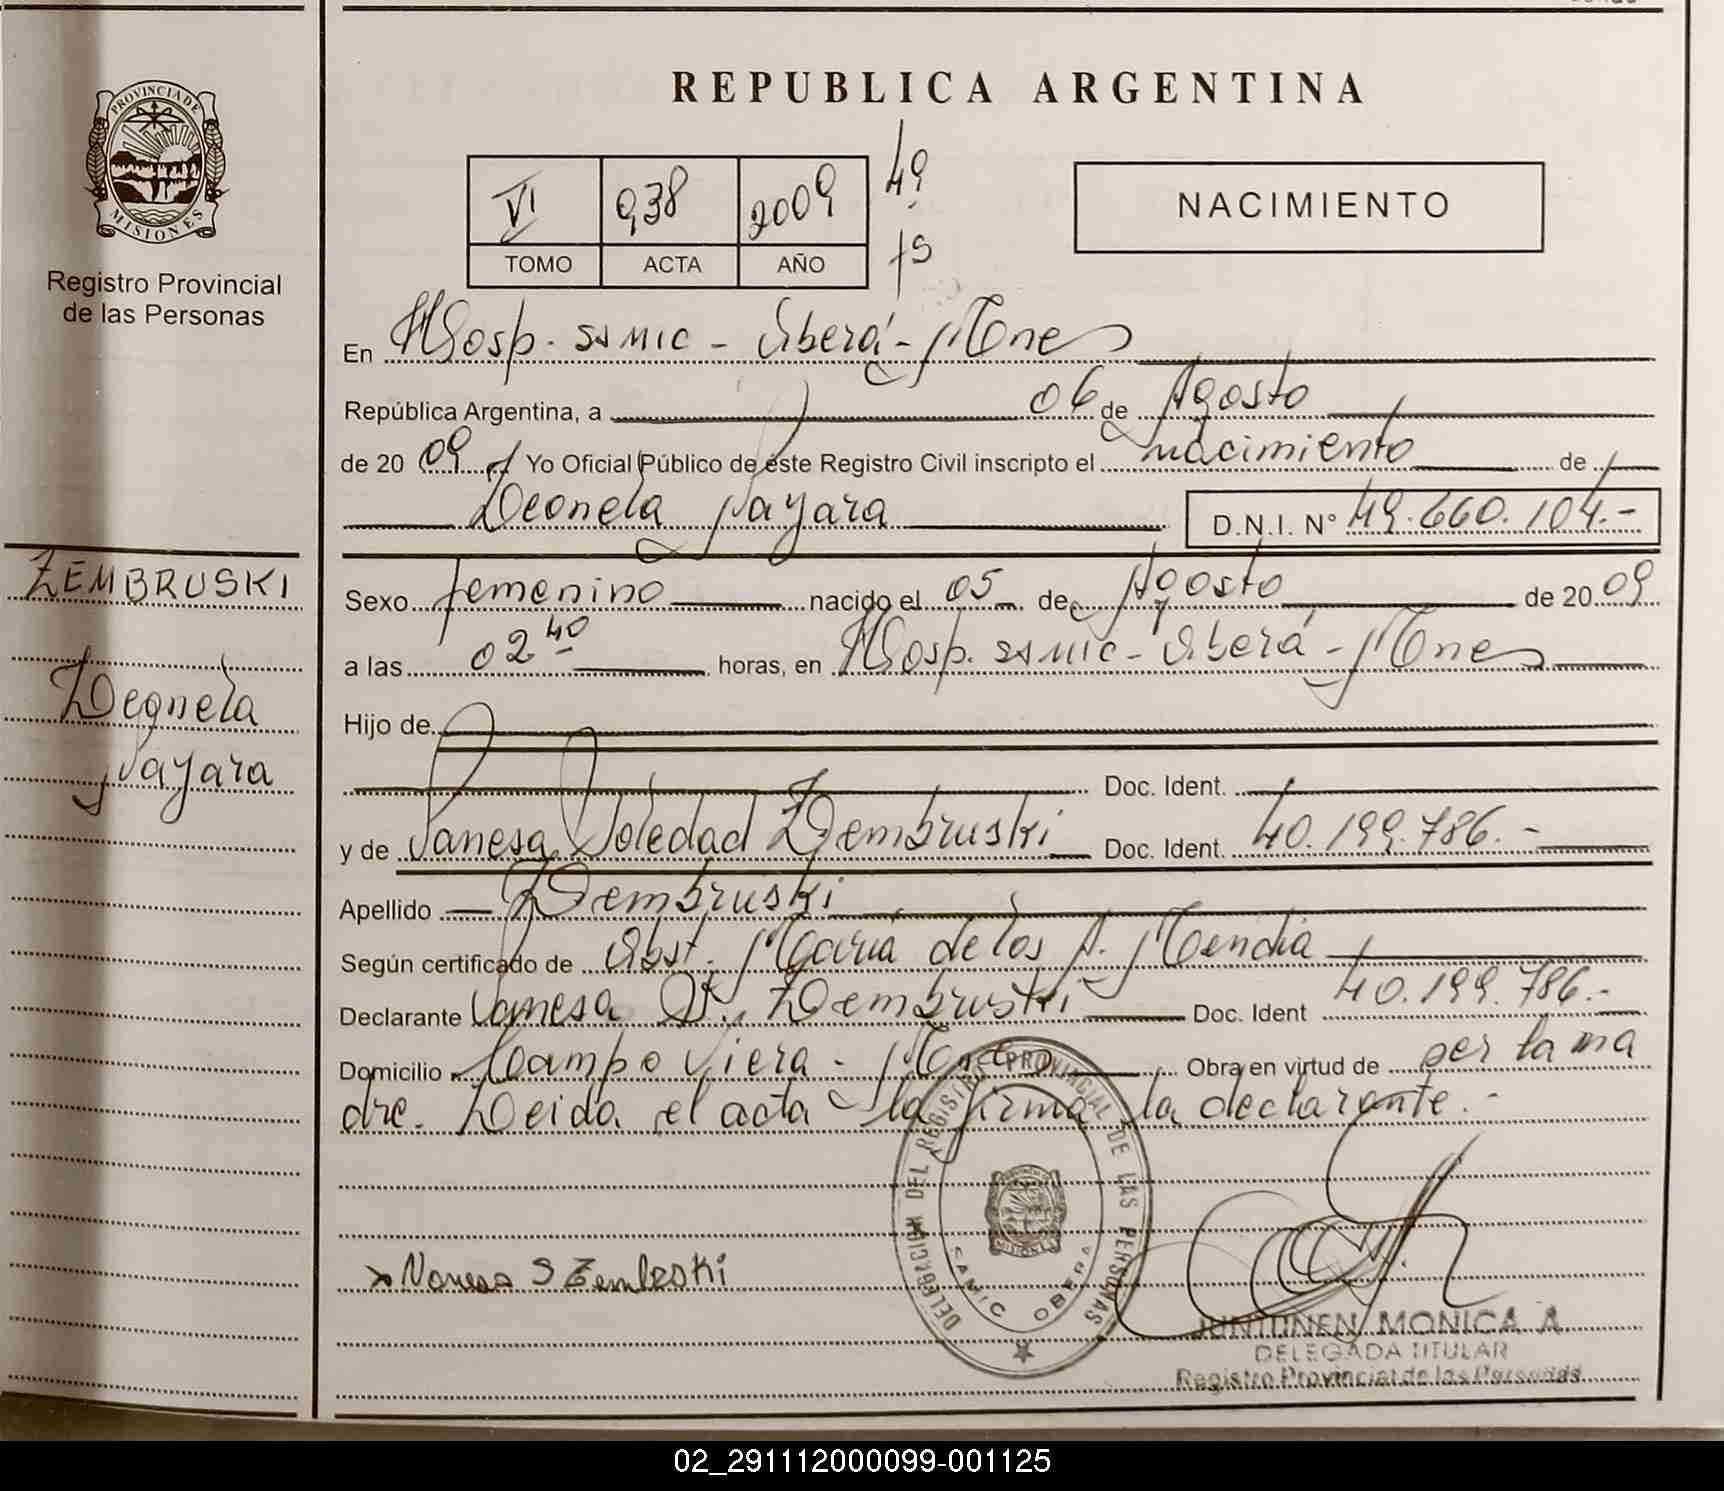 REPUBLICA ARGENTINA
PROVINCIA DE
MISIONES
Registro Provincial
de las Personas
VI 938 2009 49
TOMO ACTA AÑO fs
NACIMIENTO
En Hosp. SAMIC - Oberá - Mnes
República Argentina, a 06 de Agosto
de 20 09 Yo Oficial Público de este Registro Civil inscripto el nacimiento de
Leonela Nayara D.N.I. N° 49.660.104.-
ZEMBRUSKI
Leonela
Nayara
Sexo femenino nacido el 05 de Agosto de 20 09
a las 02 40 horas, en Hosp. SAMIC - Oberá - Mnes
Hijo de
Doc. Ident.
y de Vanesa Soledad Zembruski Doc. Ident. 40.199.786.-
Apellido Zembruski
Según certificado de Obst. María de los A. Mendia
Declarante Vanesa S. Zembruski Doc. Ident 40.199.786.-
Domicilio Campo Viera - Mnes Obra en virtud de ser la ma
dre. Leida el acta la firma la declarante.-
DELEGACION DEL REGISTRO PROVINCIAL DE LAS PERSONAS
MISIONES
SAMIC OBERA
Vanesa S Zembroski
JUNTUNEN, MONICA A.
DELEGADA TITULAR
Registro Provincial de las Personas
02_291112000099-001125